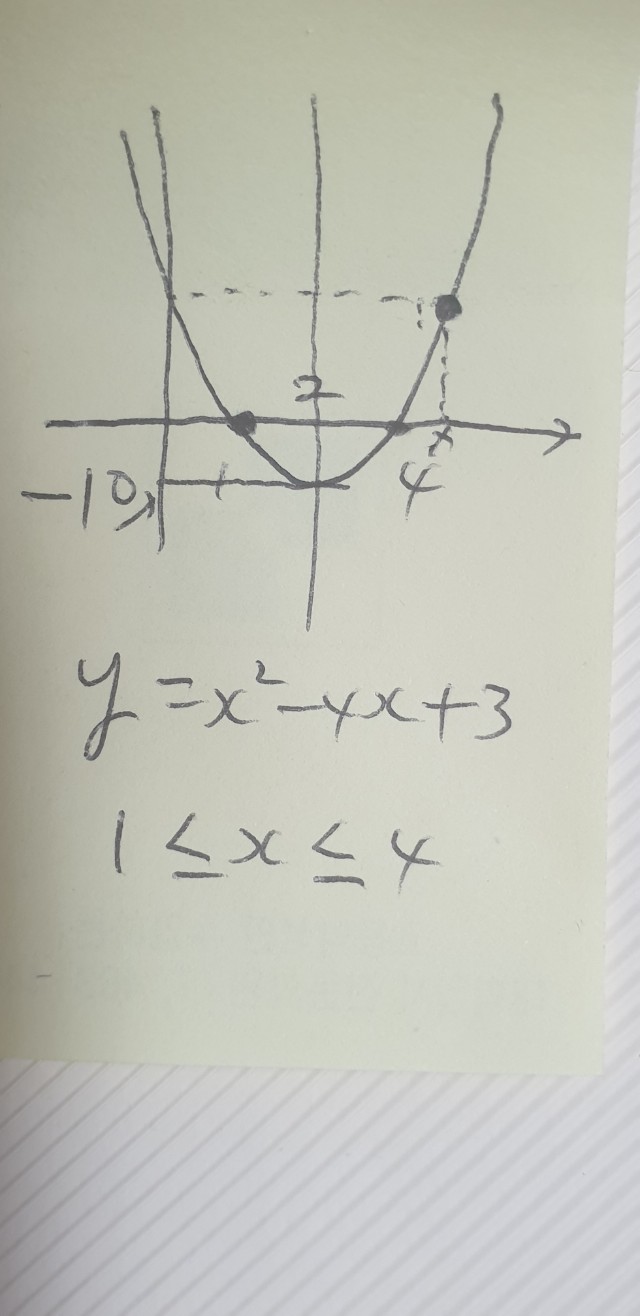 2
-1
1
4
y = x² - 4x + 3
1 ≤ x ≤ 4